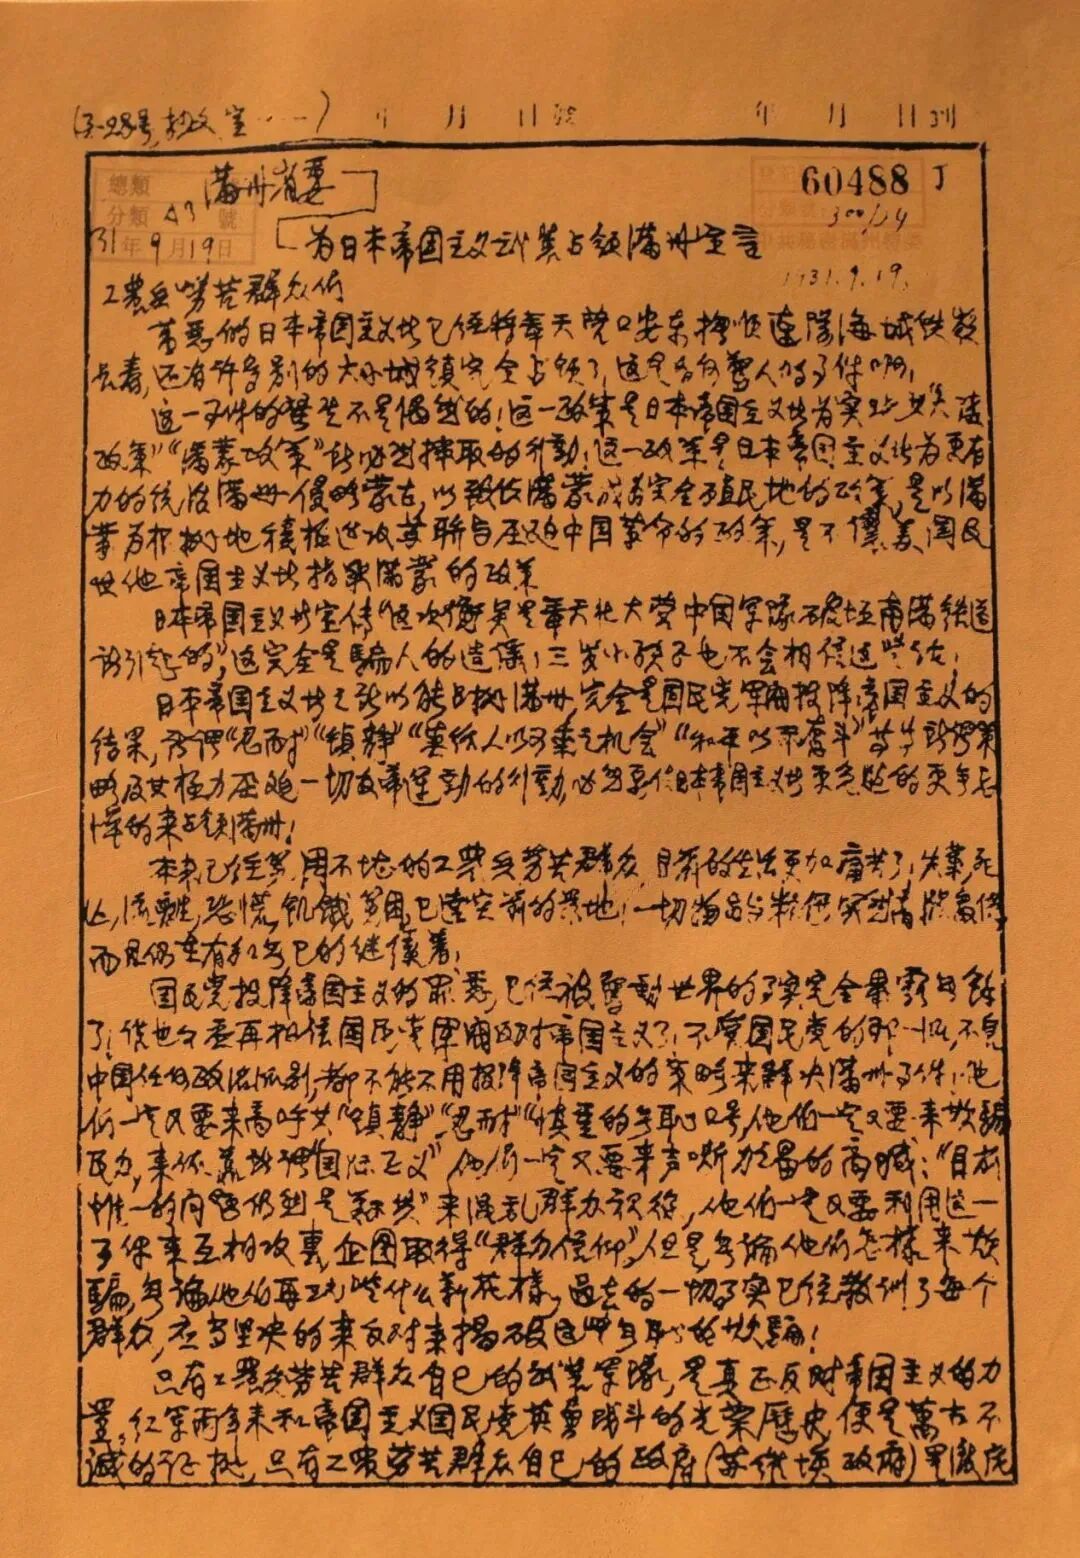 年 月 日 年 月 日到
總類 滿州省委 60488
分類 43 號
31年9月19日 为日本帝国主义武装占领满州宣言
1931.9.19.
工農兵劳苦群众们
萬惡的日本帝国主义者已经将奉天營口安东撫順遼陽海城鉄嶺
长春,还有许多别的大小城镇完全占领了,这是多么驚人的事件啊!
这一事件的發生不是偶然的!这一政策是日本帝国主义者为实现
政策”“满蒙政策”所必然採取的行動!这一政策是日本帝国主义者为更有
力的统治满州侵略蒙古,以致使满蒙成为完全殖民地的政策,是以满
蒙为根據地積極进攻苏聯与压迫中国革命的政策,是
其他帝国主义者 满蒙的政策
日本帝国主义者宣传“这次衝突是奉天北大营中国军隊破坏南满铁道
所引起的”,这完全是騙人的造謡,三岁小孩子也不会相信这些话!
日本帝国主义者之所以能占據满州,完全是国民党军閥投降帝国主义的
结果,所谓“忍耐”“镇静”“莫给人以可乘之机会”“和平以示奮斗”等等的策
略及其極力压迫一切反帝運動的行動,必然要使日本帝国主义者更急进的更无忌
惮的来占领满州!
本来已经穷困不堪的工農兵劳苦群众,目前的生活更加痛苦了,失業死
亡,流離,恐慌,饥餓,穷困,已達空前的境地!一切物品与粮食突然青 高價,
而且仍在有加无已的继续着,
国民党投降帝国主义的罪惡,已经被驚動世界的事实完全暴露无餘
了!谁也不再相信国民党军閥反对帝国主义了!不管国民党的那一派,不管
中国任何政治派别,都不能不用投降帝国主义的策略来解决满州事件,他
们一定又要来高呼其“镇静”“忍耐”“慎重”的无恥口号,他们一定又要来欺騙
民众,来依靠所谓“国际正义”他们一定又要来声嘶力竭的高喊:“目前
惟一的问题仍然是剿共”来混乱群众视线,他们一定又要利用这一
事件来互相攻擊,企图取得“群众信仰”,但是无论他们怎樣来欺
騙,无论他们再玩些什么新花樣,过去的一切事实已经教训了每个
群众,应当坚决的来反对来揭破这些无恥的欺騙!
只有工農兵劳苦群众自己的武装军隊,是真正反对帝国主义的力
量,红军两年来和帝国主义国民党英勇战斗的光荣歷史,便是萬古不
滅的证據,只有工農劳苦群众自己的政府(苏维埃政府)是徹底